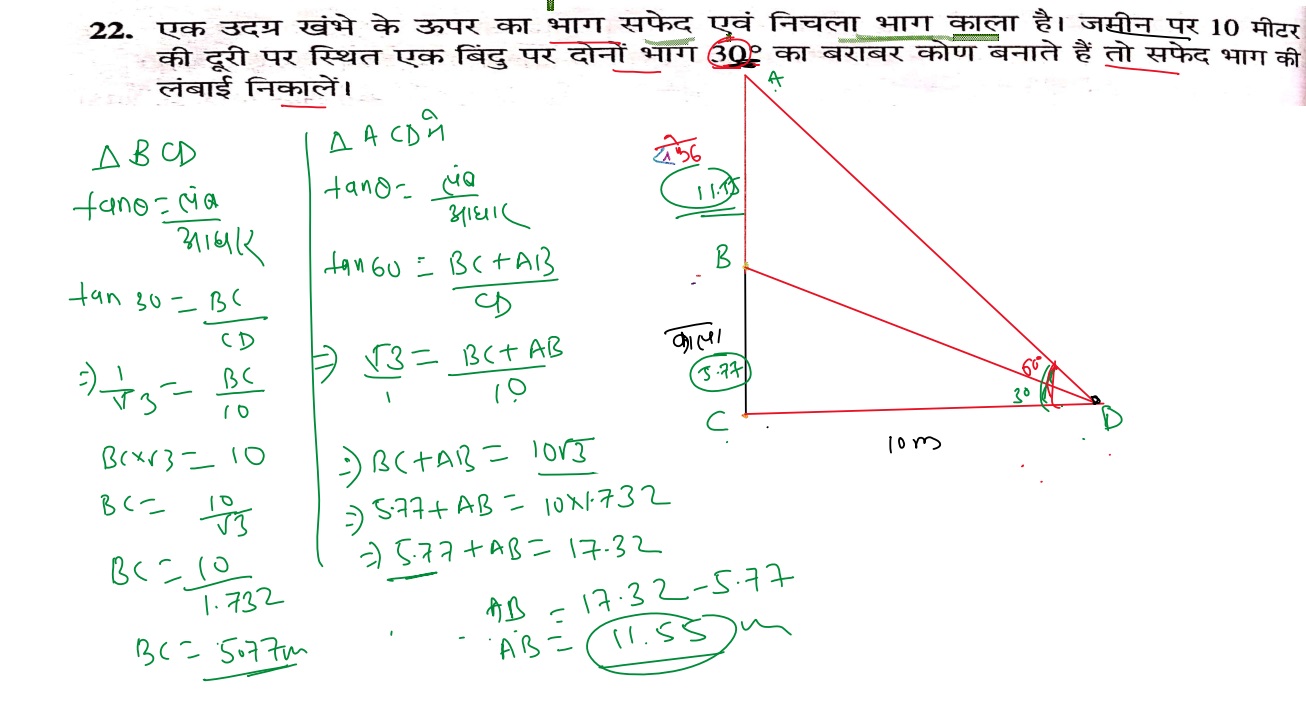 22. एक उदग्र खंभे के ऊपर का भाग सफेद एवं निचला भाग काला है। जमीन पर 10 मीटर
की दूरी पर स्थित एक बिंदु पर दोनों भाग 30° का बराबर कोण बनाते हैं तो सफेद भाग की
लंबाई निकालें।
Δ BCD
tanθ = लंब
आधार
tan 30 = BC
CD
⇒ 1 = BC
√3 10
BC×√3 = 10
BC = 10
√3
BC = 10
1.732
BC = 5.77m
Δ ACD में
tanθ = लंब
आधार
tan 60 = BC + AB
CD
⇒ √3 = BC + AB
1 10
⇒ BC + AB = 10√3
⇒ 5.77 + AB = 10×1.732
⇒ 5.77 + AB = 17.32
AB = 17.32 - 5.77
AB = 11.55 m
A
11.55
B
काला
5.77
60°
30
C
D
10m